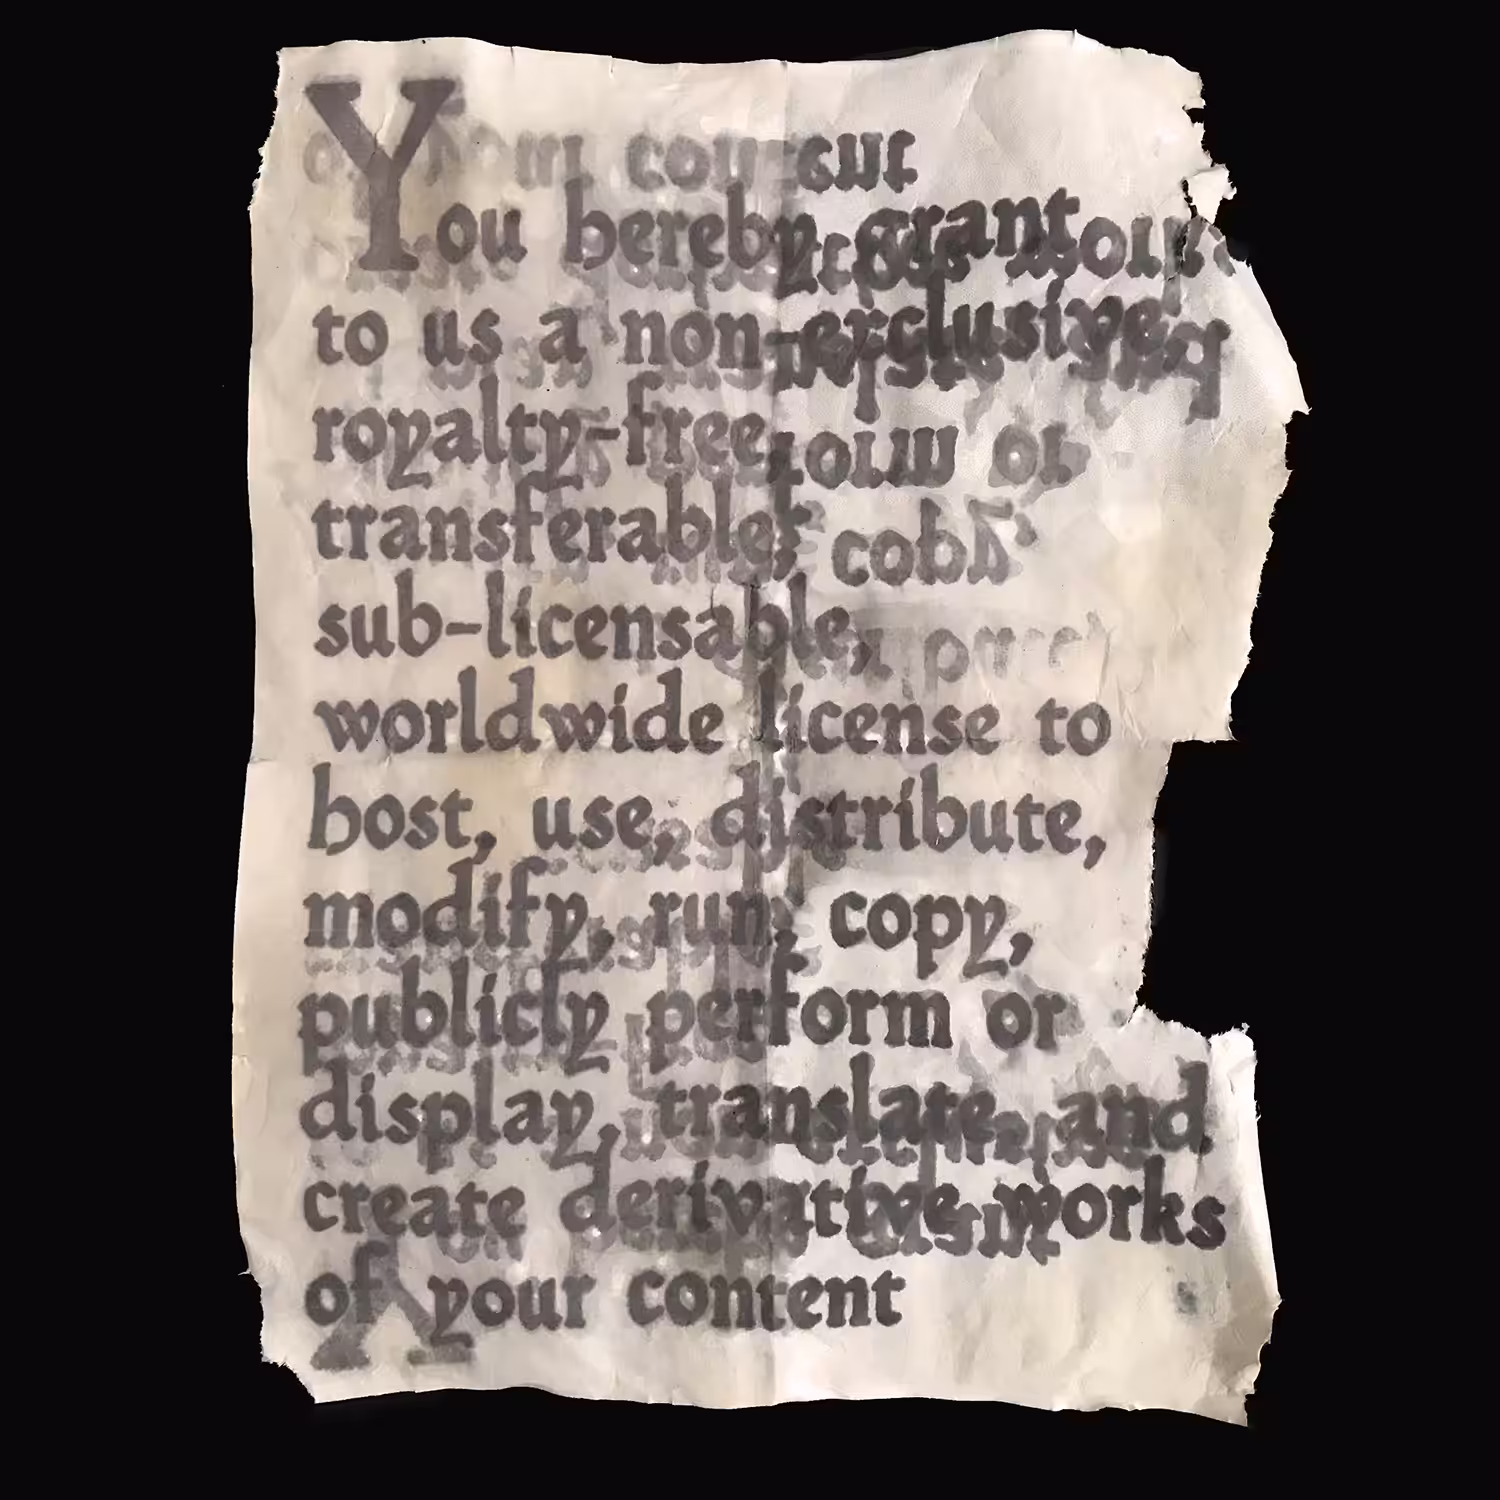 You hereby grant
to us a non-exclusive,
royalty-free,
transferable,
sub-licensable,
worldwide license to
host, use, distribute,
modify, run, copy,
publicly perform or
display, translate, and
create derivative works
of your content